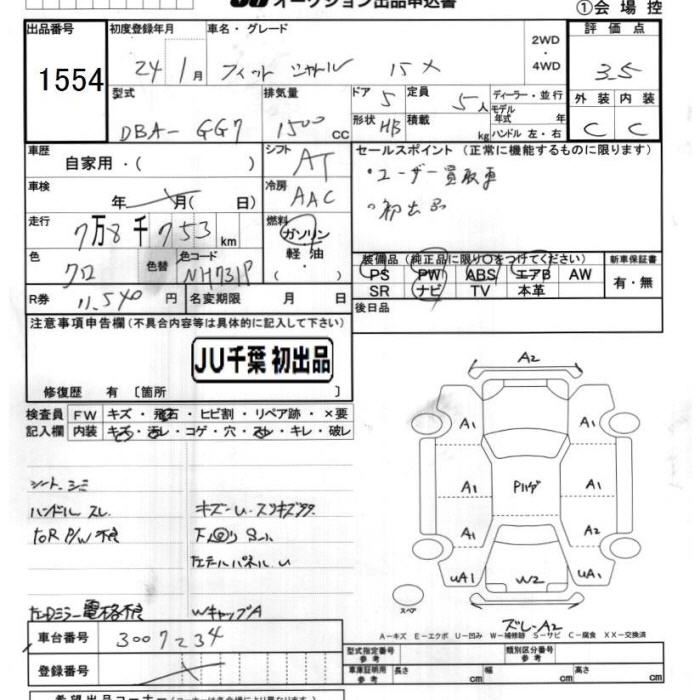 オークション出品申込書
①会場控
出品番号
1554
初度登録年月
24 1月
車名・グレード
フィット シャトル 15X
2WD
・
4WD
評価点
3.5
型式
DBA- GG7
排気量
1500 cc
ドア 5
形状 HB
定員 5人
積載 kg
ディーラー・並行
モデル年式 年
ハンドル 左・右
外装 内装
C C
車歴
自家用・( )
シフト AT
セールスポイント (正常に機能するものに限ります)
・ユーザー買取車
・初出品
車検
年 月( 日)
冷房 AAC
走行
7万8千753km
燃料
ガソリン
軽油
・
色
クロ
色替
色コード
NH731P
装備品(純正品に限り○をつけてください)
新車保証書
PS PW ABS エアB AW
SR ナビ TV 本革
有・無
R券 11,540円
名変期限 月 日
後日品
注意事項申告欄(不具合内容等は具体的に記入して下さい)
JU千葉 初出品
修復歴 有 〔箇所 〕
検査員記入欄
FW キズ・飛石・ヒビ割・リペア跡・×要
内装 キズ・汚レ・コゲ・穴・スレ・キレ・破レ
シート シミ
ハンドル スレ
キズ-U-スリキズタタ
P/W 不良
左テールパネル U
左Dミラー電格不良
WキャップA
A2
A1 A1
A1 A1
A1 A2
UA1 W2 UA1
スペア
ズレ-A2
A-キズ E-エクボ U-凹み W-補修跡 S-サビ C-腐食 XX-交換済
車台番号
3007234
登録番号
型式指定番号 参考
類別区分番号 参考
車庫証明 参考 長さ cm 幅 cm 高さ cm
希望出品コーナー